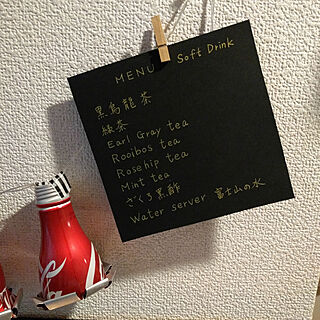 MENU Soft Drink
黒烏龍茶
緑茶
Earl Gray tea
Rooibos tea
Rosehip tea
Mint tea
ざくろ黒酢
Water server 富士山の水